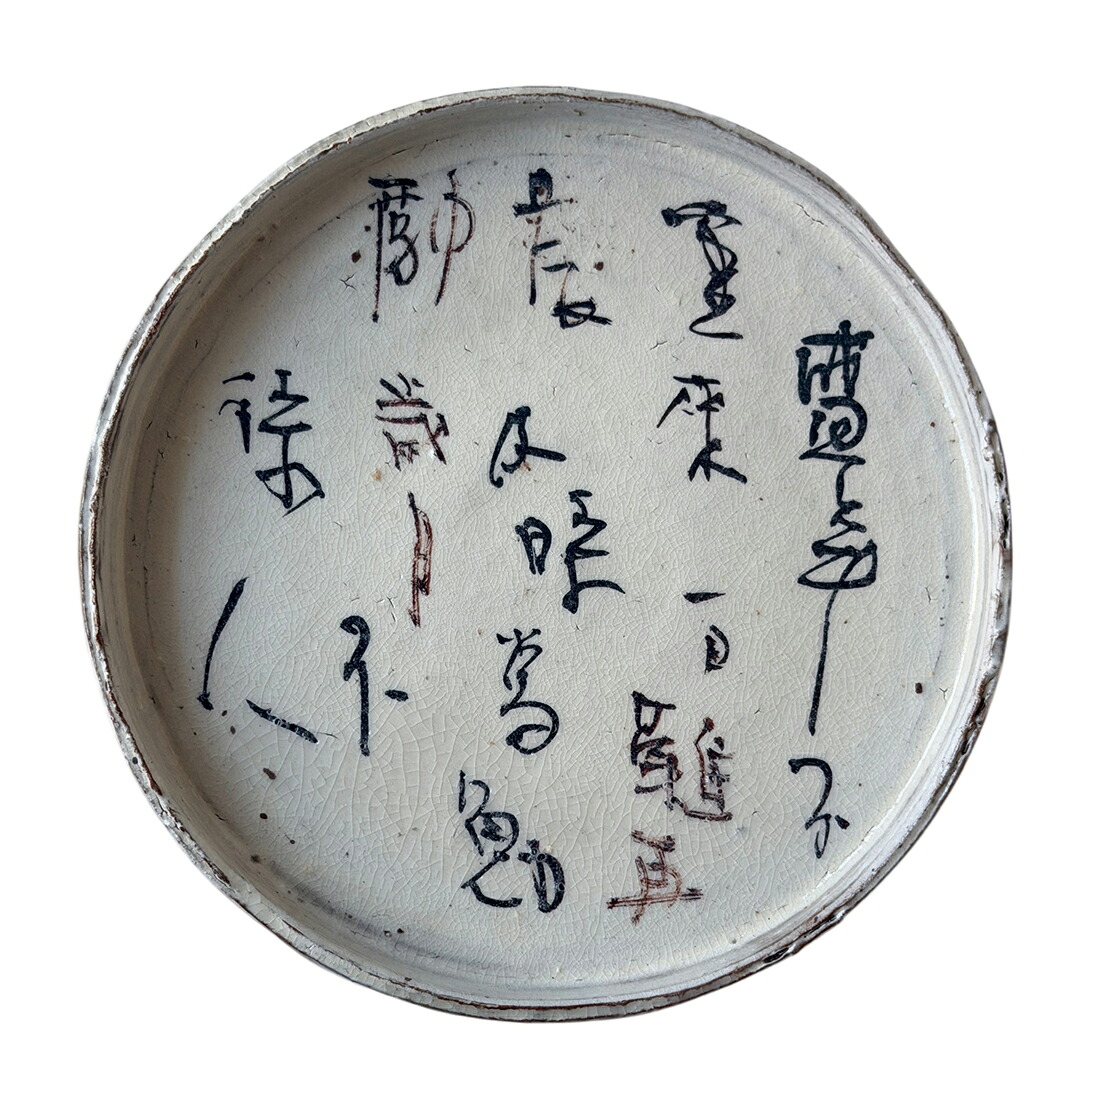 盛年不
重來一日難再
晨及時當勉
勵歲月不
待人